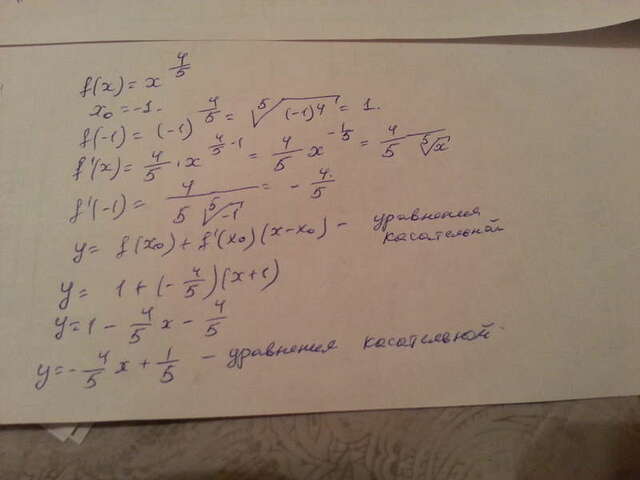 f(x) = x^(4/5)
x₀ = -1.
f(-1) = (-1)^(4/5) = ⁵√((-1)⁴) = 1.
f'(x) = 4/5 · x^(4/5 - 1) = 4/5 x^(-1/5) = 4/(5 ⁵√x)
f'(-1) = 4/(5 ⁵√-1) = - 4/5.
y = f(x₀) + f'(x₀)(x-x₀) - уравнения касательной
y = 1 + (- 4/5)(x+1)
y = 1 - 4/5 x - 4/5
y = - 4/5 x + 1/5 - уравнения касательной